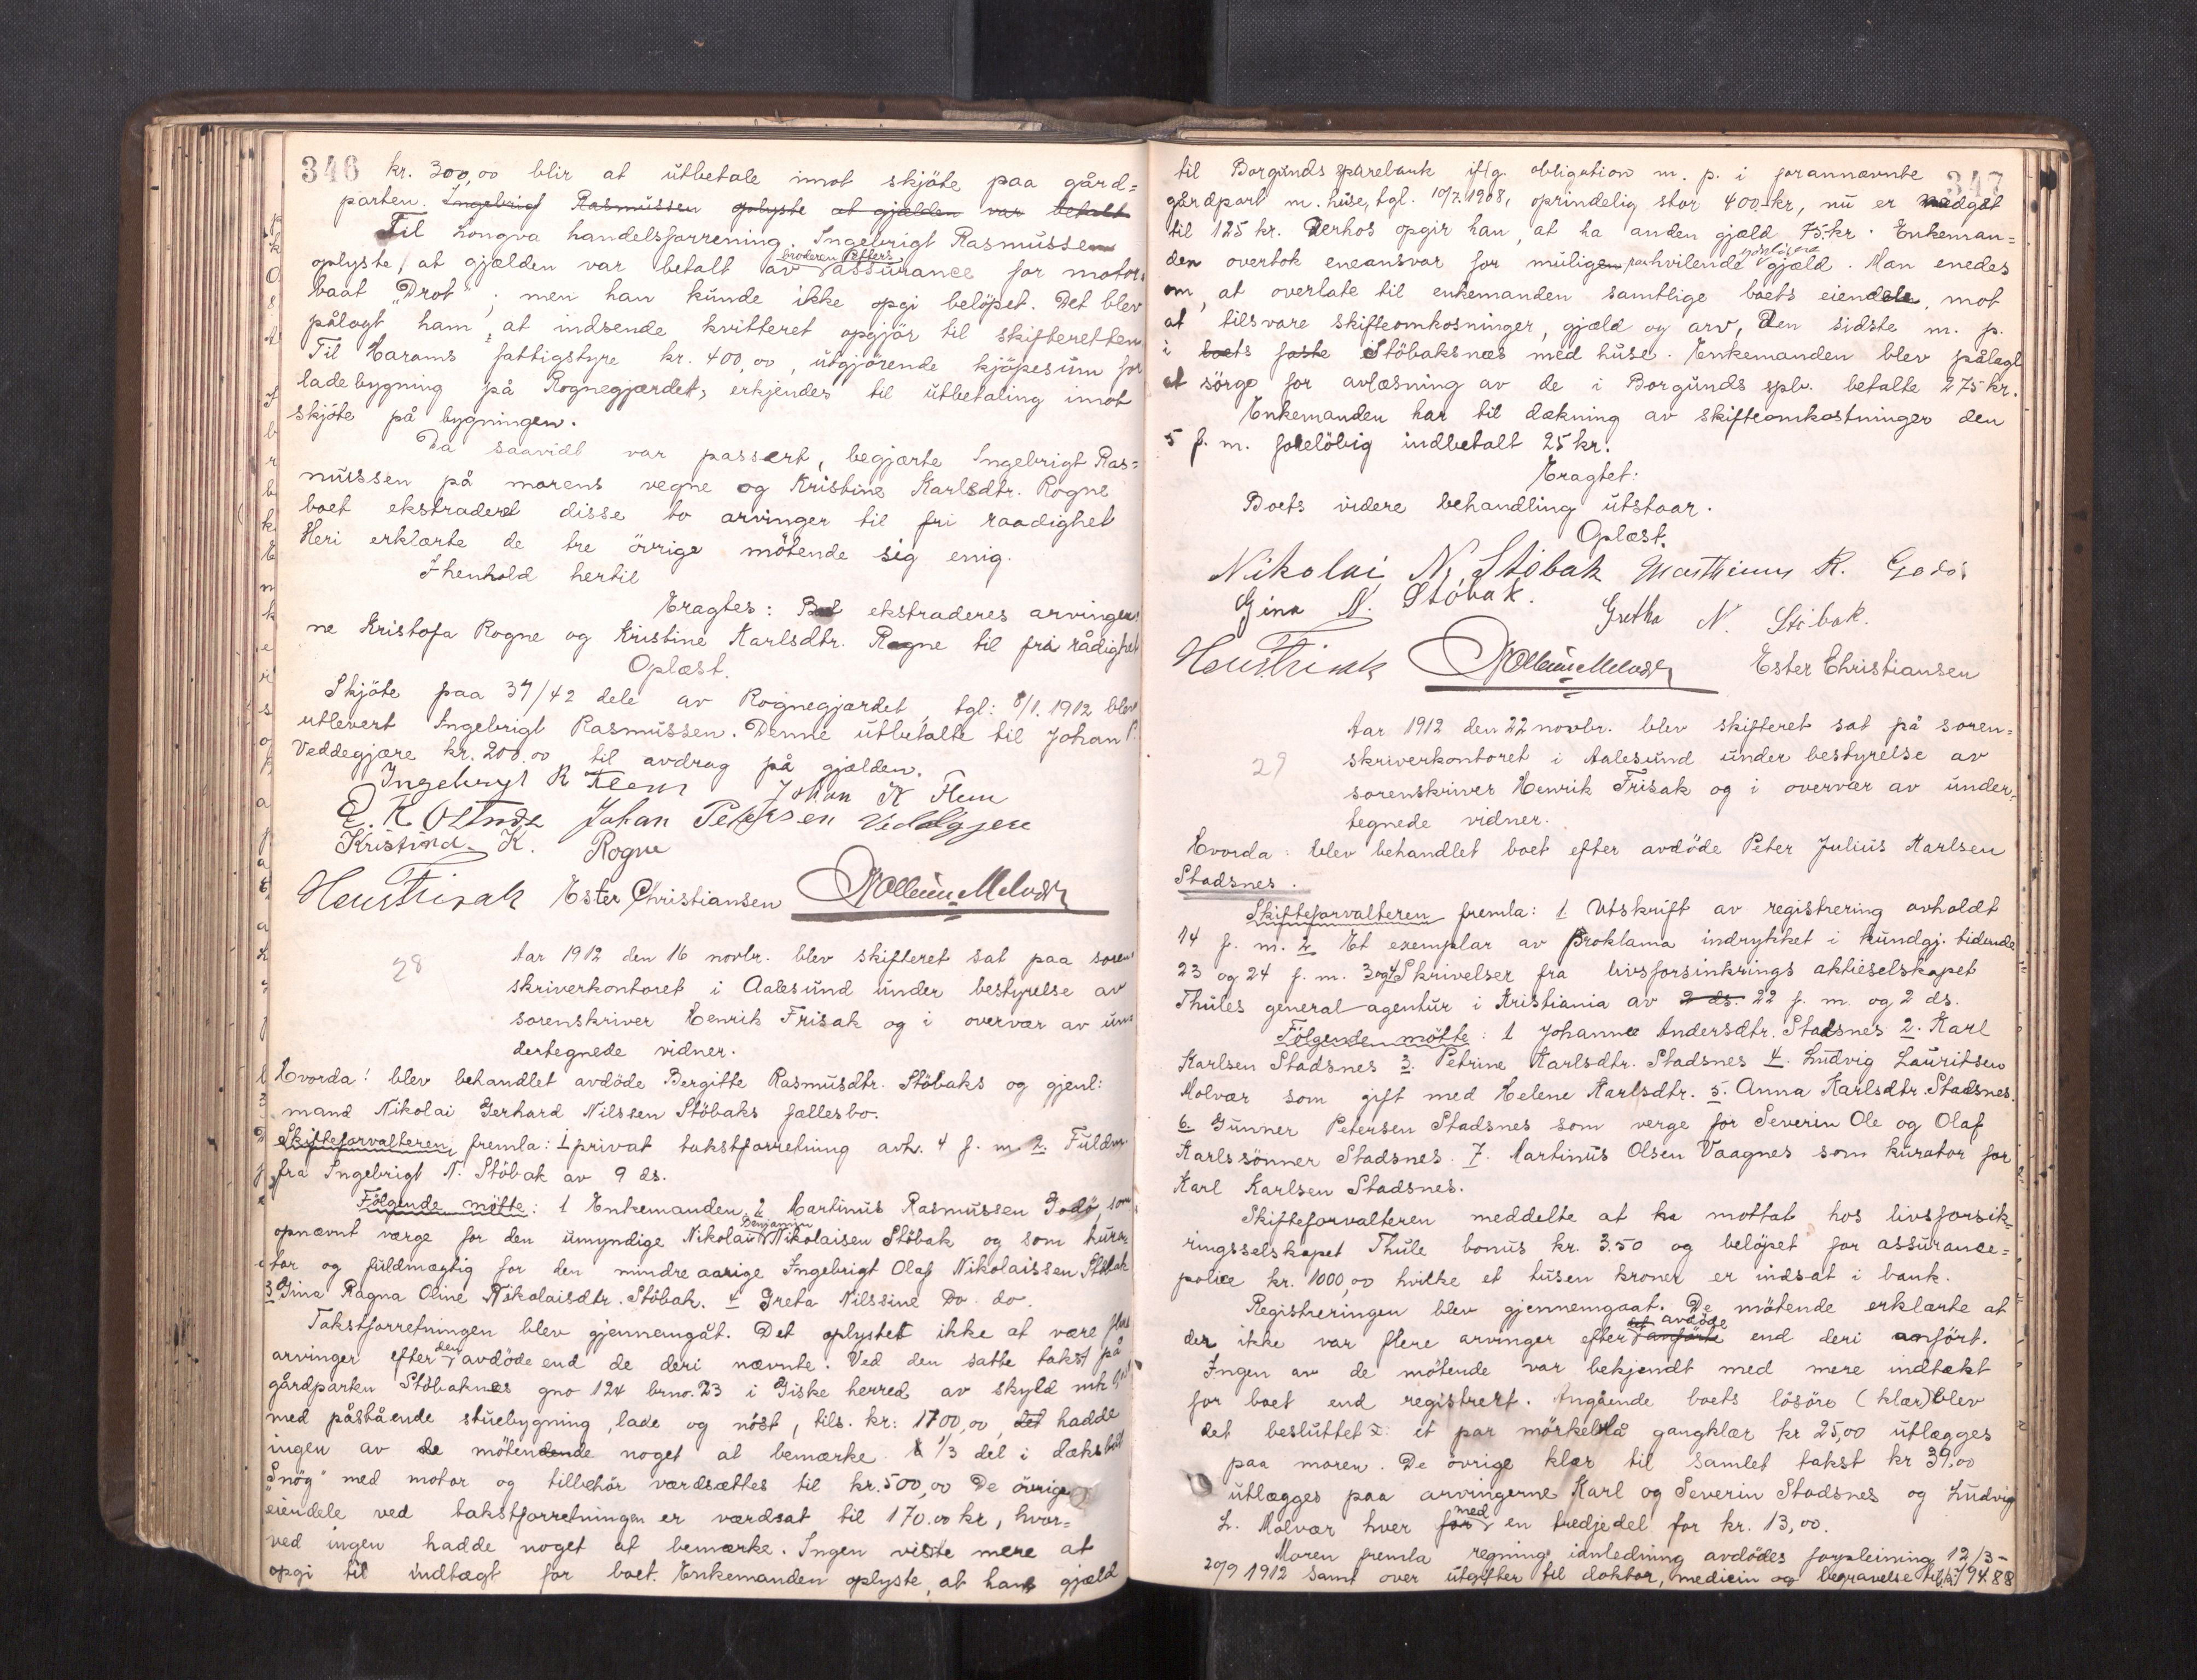 346
kr. 300,00 blir at utbetale imot skjöte paa gård=
parten. Ingebrigt Rasmussen oplyste at gjælden var betalt
Til Longva handelsforrening. Ingebrigt Rasmussen
oplyste, at gjælden var betalt av broderen Petters assurance for motor-
baat "Drot", men han kunde ikke opgi belöpet. Det blev
pålagt ham, at indsende kvitteret opgjör til skifteretten
Til Harams fattigstyre kr. 400,00, utgjörende kjöpesum for
ladebygning på Rognegjærdet, erkjendes til utbetaling imot
skjöte på bygningen.
Da saavidt var passert, begjærte Ingebrigt Ras=
mussen på morens vegne og Kristine Karlsdtr. Rogne
boet ekstraderet disse to arvinger til fri raadighet
Heri erklærte de tre övrige mötende sig enig.
I henhold hertil
Eragtes: Bot ekstraderes arvinger
ne Kristofa Rogne og Kristine Karlsdtr. Rogne til fri rådighet
Oplæst.
Skjöte paa 37/42 dele av Rognegjærdet, tgl: 8/1. 1912 blev
utlevert Ingebrigt Rasmussen. Denne utbetalte til Johan P.
Veddegjære kr. 200.00 til avdrag på gjælden.
Ingebrigt R Flem Johan K Flem
Johan Petersen Veddegjere
Kristine K. Rogne
Hen Frisak Ester Christiansen
28
Aar 1912 den 16 novbr. blev skifteret sat paa soren-
skriverkontoret i Aalesund under bestyrelse av
sorenskriver Henrik Frisak og i overvær av un-
dertegnede vidner.
Hvorda! blev behandlet avdöde Bergitte Rasmusdtr. Stöbaks og gjenl:
mand Nikolai Gerhard Nilssen Stöbaks fællesbo.
Skifteforvalteren fremla: 1 privat takstforretning avh. 4 f. m. 2. Fuldm.
fra Ingebrigt N. Stöbak av 9 ds.
Fölgende mötte: 1 Enkemanden, 2 Martinus Rasmussen Godö, som
opnævnt værge for den umyndige Nikolau Benjamin Nikolaisen Stöbak og som kura
tor og fuldmægtig for den mindreaarige Ingebrigt Olaf Nikolaissen Stöbak
3 Gina Ragna Oline Nikolaisdtr. Stöbak. 4 Greta Nilssine Do. do.
Takstforretningen blev gjennemgåt. Det oplystet ikke at være flere
arvinger efter den avdöde end de deri nævnte. Ved den satte takst på
gårdparten Stöbaknes gno 124 brno. 23 i Giske herred av skyld mk
med påstående stuebygning, lade og nöst, tils. kr: 1700,00, det hadde
ingen av de mötendende noget at bemærke. 1/3 del i dæksbåt
"Snög" med motor og tilbehör værdsættes til kr. 500,00 De övrige
eiendele ved takstforretningen er værdsat til 170.00 kr, hvor=
ved ingen hadde noget at bemærke. Ingen viste mere at
opgi til indtægt for boet. Enkemanden oplyste, at hans gjæld
347
til Borgunds sparebank iflg. obligation m. p. i forannævnte
gårdpart m. huse, tgl. 10/7. 1908, oprindelig stor 400.- kr, nu er nedgåt
til 125 kr. Derhos opgir han, at ha anden gjæld 75.- kr. Enkeman=
den overtok eneansvar for muligen paahvilende gjæld. Man enedes
om, at overlate til enkemanden samtlige boets eiendele, mot
at tilsvare skifteomkosninger, gjæld og arv, den sidste m. p.
i boets faste Stöbaksnæs med huse. Enkemanden blev pålagt
at sörge for avlæsning av de i Borgunds spb. betalte 275 kr.
Enkemanden har til dækning av skifteomkostninger den
5 f. m. forelöbig indbetalt 25 kr.
Eragtet:
Boets videre behandling utstaar.
Oplæst.
Nikolai N. Stöbak Marthinus R. Godö
Gina N. Stöbak. Gretha N. Stöbak.
Hen Frisak Ester Christiansen
29
Aar 1912 den 22 novbr. blev skifteret sat på soren=
skriverkontoret i Aalesund under bestyrelse av
sorenskriver Henrik Frisak og i overvær av under=
tegnede vidner.
Hvorda: blev behandlet boet efter avdöde Peter Julius Karlsen
Stadsnes.
Skifteforvalteren fremla: 1 Utskrift av registrering avholdt
14 f. m. 2 Et exemplar av Proklama indrykket i kundgj. tidende
23 og 24 f. m. 3 og 4 Skrivelser fra livsforsinkrings aktieselskapet
Thules general-agentur i Kristiania av 2 ds. 22 f. m. og 2 ds.
Fölgende mötte: 1 Johanne Andersdtr. Stadsnes 2. Karl
Karlsen Stadsnes 3. Petrine Karlsdtr. Stadsnes 4. Ludvig Lauritsen
Molvær som gift med Helene Karlsdtr. 5. Anna Karlsdtr. Stadsnes.
6 Gunner Petersen Stadsnes som verge for Severin Ole og Olaf
Karlssönner Stadsnes. 7. Martinus Olsen Vaagnes som kurator for
Karl Karlsen Stadsnes.
Skifteforvalteren meddelte at ha mottat hos livsforsik=
ringsselskapet Thule bonus kr. 3.50 og belöpet for assurance=
police kr. 1000,00 hvilke et tusen kroner er indsat i bank.
Registreringen blev gjennemgaat. De mötende erklærte at
der ikke var flere arvinger efter avdöde anförte end deri anfört.
Ingen av de mötende var bekjendt med mere indtækt
for boet end registrert. Angående boets lösöre (klær) blev
det besluttet: et par mörkeblå gangklær kr 25,00 utlægges
paa moren. De övrige klær til samlet takst kr 39.00
utlægges paa arvingerne Karl og Severin Stadsnes og Ludvig
L. Molvær hver for med en tredjedel for kr. 13,00.
Moren fremla regning ianledning avdödes forpleining 12/3-
20/9 1912 samt over utgifter til doktor, medicin og begravelse tils. kr. 194.88